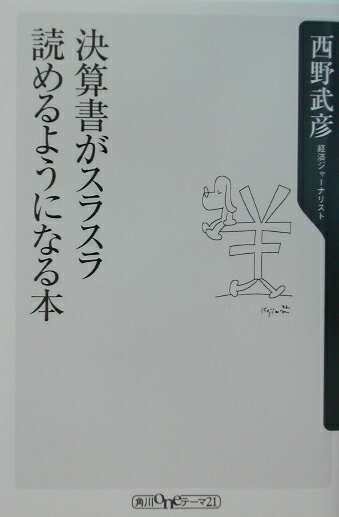 西野武彦
経済ジャーナリスト
決算書がスラスラ
読めるようになる本
角川oneテーマ21